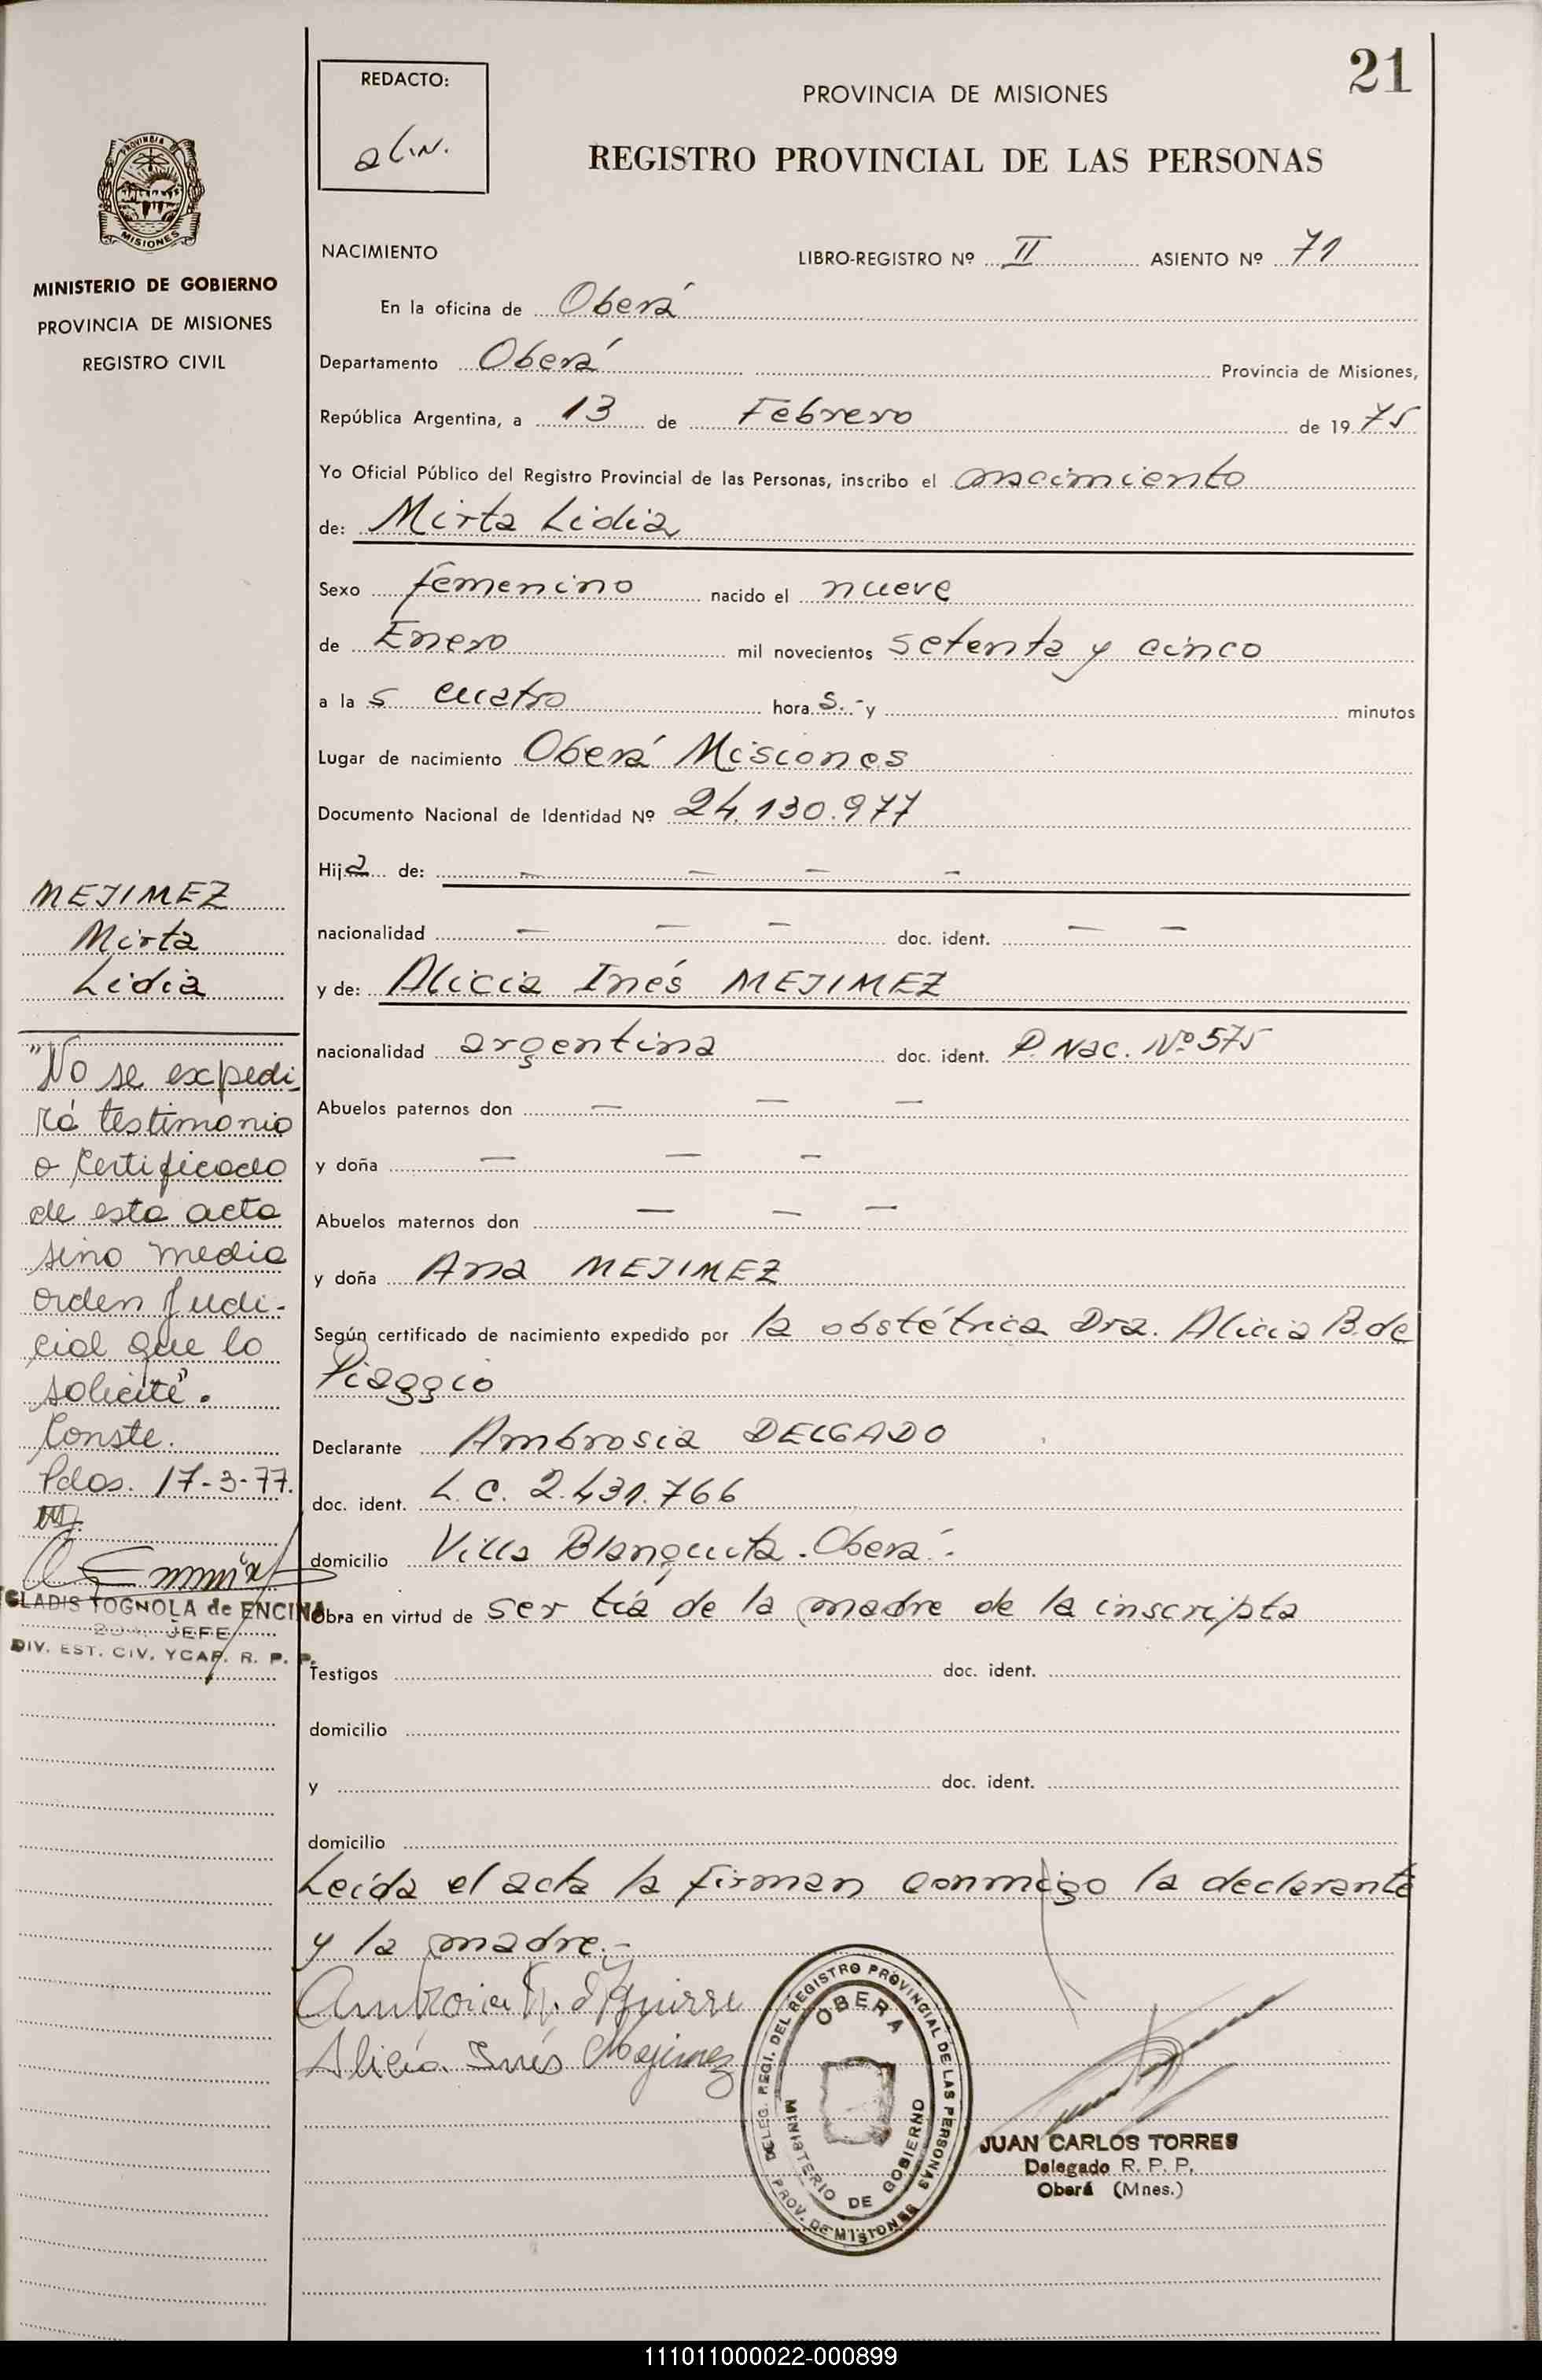 21
REDACTO:
PROVINCIA DE MISIONES
REGISTRO PROVINCIAL DE LAS PERSONAS
PROVINCIA
MISIONES
MINISTERIO DE GOBIERNO
PROVINCIA DE MISIONES
REGISTRO CIVIL
NACIMIENTO LIBRO-REGISTRO Nº II ASIENTO Nº 71
En la oficina de Oberá
Departamento Oberá Provincia de Misiones,
República Argentina, a 13 de Febrero de 1975
Yo Oficial Público del Registro Provincial de las Personas, inscribo el nacimiento
de: Mirta Lidia
Sexo femenino nacido el nueve
de Enero mil novecientos setenta y cinco
a las cuatro horas.- y minutos
Lugar de nacimiento Oberá Misiones
Documento Nacional de Identidad Nº 24.130.977
Hija de: — — — —
nacionalidad — — — doc. ident. — —
y de: Alicia Inés MEJIMEZ
nacionalidad argentina doc. ident. P. Nac. Nº 575
Abuelos paternos don — — —
y doña — — —
Abuelos maternos don — — —
y doña Ana MEJIMEZ
Según certificado de nacimiento expedido por la obstétrica Dra. Alicia B. de
Piaggio
Declarante Ambrosia DELGADO
doc. ident. L. C. 2.431.766
domicilio Villa Blanquita. Oberá.-
Obra en virtud de ser tía de la madre de la inscripta
Testigos doc. ident.
domicilio
y doc. ident.
domicilio
Leída el acta la firman conmigo la declarante
y la madre.-
Alicia Inés Mejimez
MEJIMEZ
Mirta
Lidia
"No se expedi
rá testimonio
o Certificado
de esta acta
sino media
orden Judi-
cial que lo
solicite".
Conste.
Pdas. 17-3-77.
GLADIS TOGNOLA de ENCINA
JEFE
DIV. EST. CIV. Y CAP. R. P. P.
DELEG. REGI. DEL REGISTRO PROVINCIAL DE LAS PERSONAS
OBERA
MINISTERIO DE GOBIERNO
PROV. DE MISIONES
JUAN CARLOS TORRES
Delegado R. P. P.
Oberá (Mnes.)
111011000022-000899